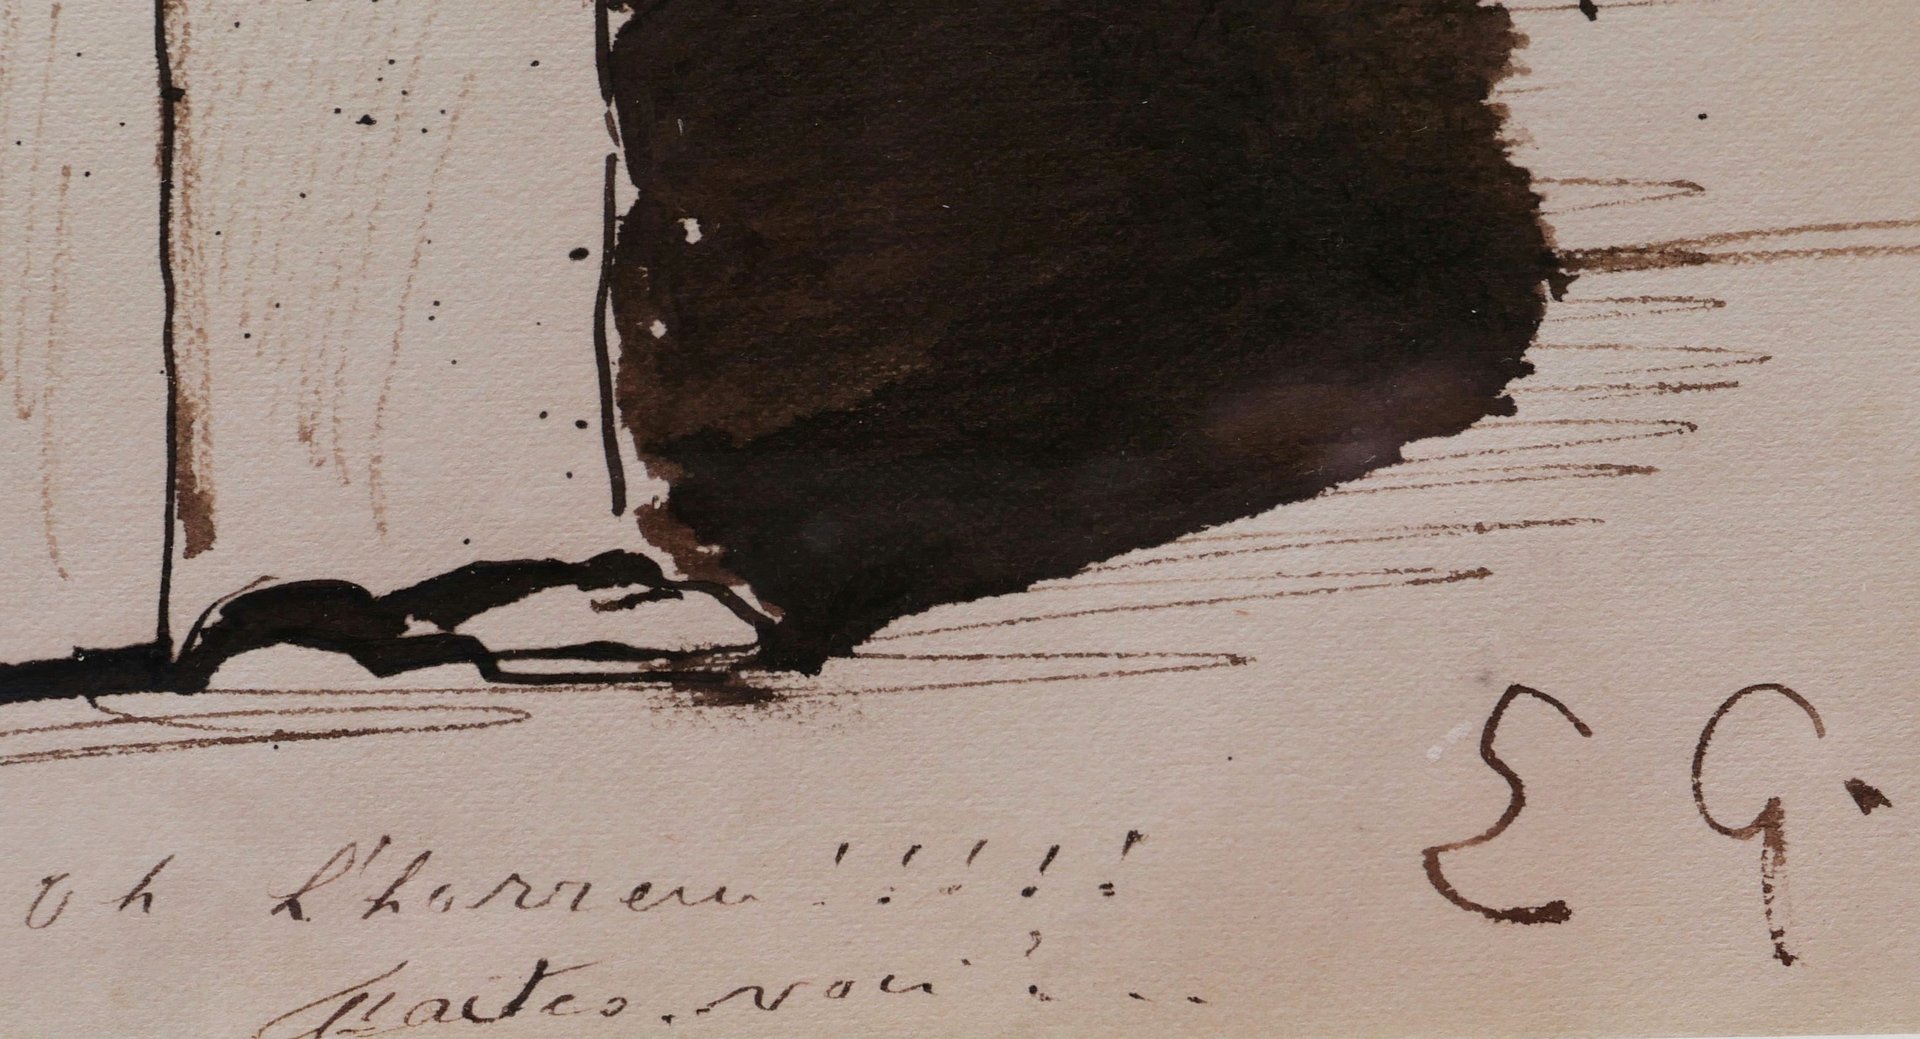 E G.
oh l'horreur !!!!!
faites. voir ! ...